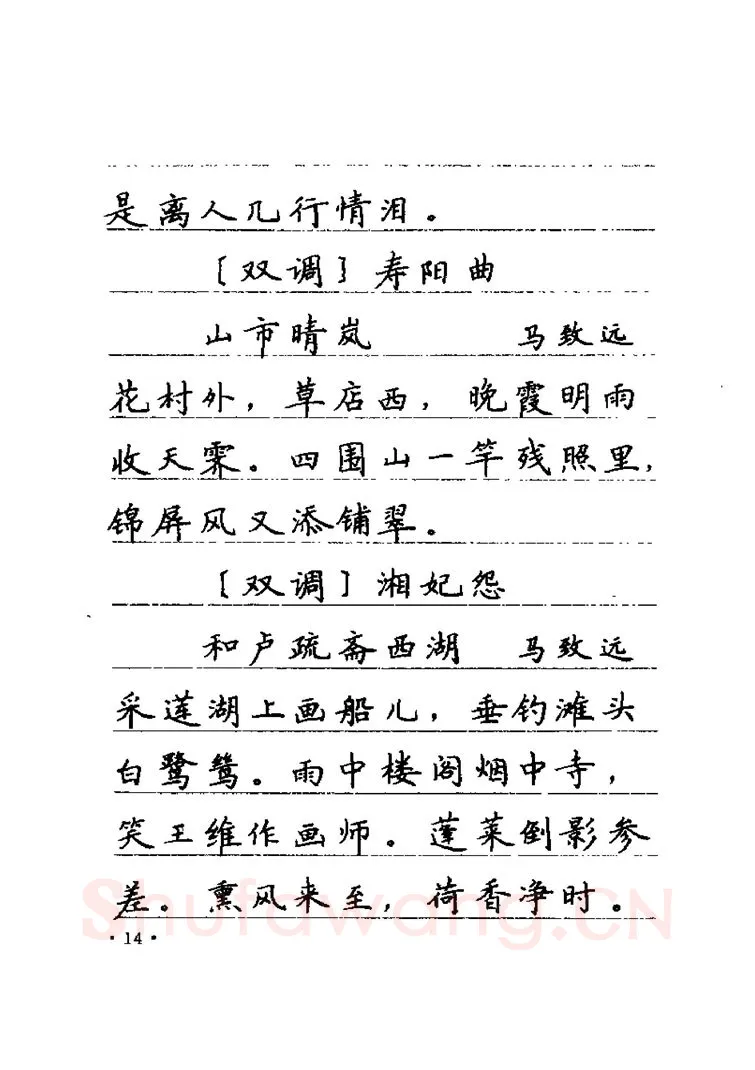 是离人几行情泪。
〔双调〕寿阳曲
山市晴岚 马致远
花村外，草店西，晚霞明雨
收天霁。四围山一竿残照里，
锦屏风又添铺翠。
〔双调〕湘妃怨
和卢疏斋西湖 马致远
采莲湖上画船儿，垂钓滩头
白鹭鸶。雨中楼阁烟中寺，
笑王维作画师。蓬莱倒影参
差。熏风来至，荷香净时。
·14·
Shufawang.CN